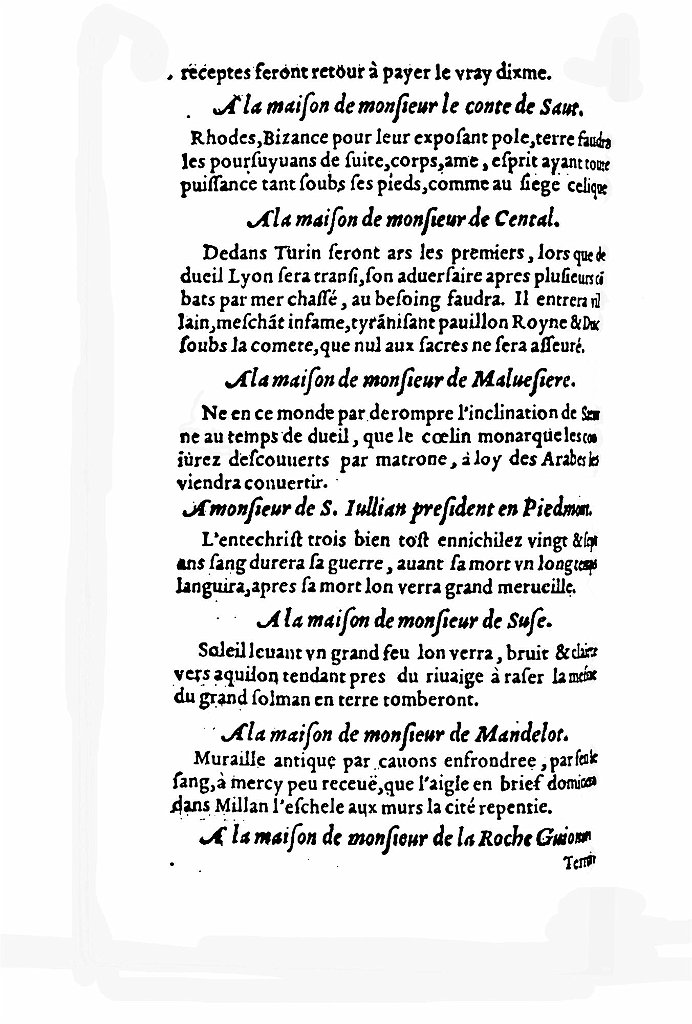 receptes ſeront retour à payer le vray dixme.
A la maiſon de monſieur le conte de Saut.
Rhodes, Bizance pour leur expoſant pole, terre faudra
les pourſuyuans de ſuite, corps, ame, eſprit ayant toute
puiſſance tant ſoubs ſes pieds, comme au ſiege celique
A la maiſon de monſieur de Cental.
Dedans Turin ſeront ars les premiers, lors que de
dueil Lyon ſera tranſi, ſon aduerſaire apres pluſieurs cõ
bats par mer chaſſé, au beſoing faudra. Il entrera vil
lain, meſchãt infame, tyrãniſant pauillon Royne & Duc
ſoubs la comete, que nul aux ſacres ne ſera aſſeuré.
A la maiſon de monſieur de Malueſiere.
Ne en ce monde par derompre l'inclination de
ne au temps de dueil, que le cœlin monarque les con
iürez deſcouuerts par matrone, à loy des Arabes les
viendra conuertir.
A monſieur de S. Iullian preſident en Piedmon.
L'entechriſt trois bien toſt ennichilez vingt & ſept
ans ſang durera ſa guerre, auant ſa mort vn longtemps
languira, apres ſa mort lon verra grand merueille.
A la maiſon de monſieur de Suſe.
Soleil leuant vn grand feu lon verra, bruit & clairté
vers aquilon tendant pres du riuaige à raſer la
du grand ſolman en terre tomberont.
A la maiſon de monſieur de Mandelot.
Muraille antique par canons enfrondree, par feu le
ſang, à mercy peu receuë, que l'aigle en brief
dans Millan l'eſchele aux murs la cité repentie.
A la maiſon de monſieur de la Roche Guion